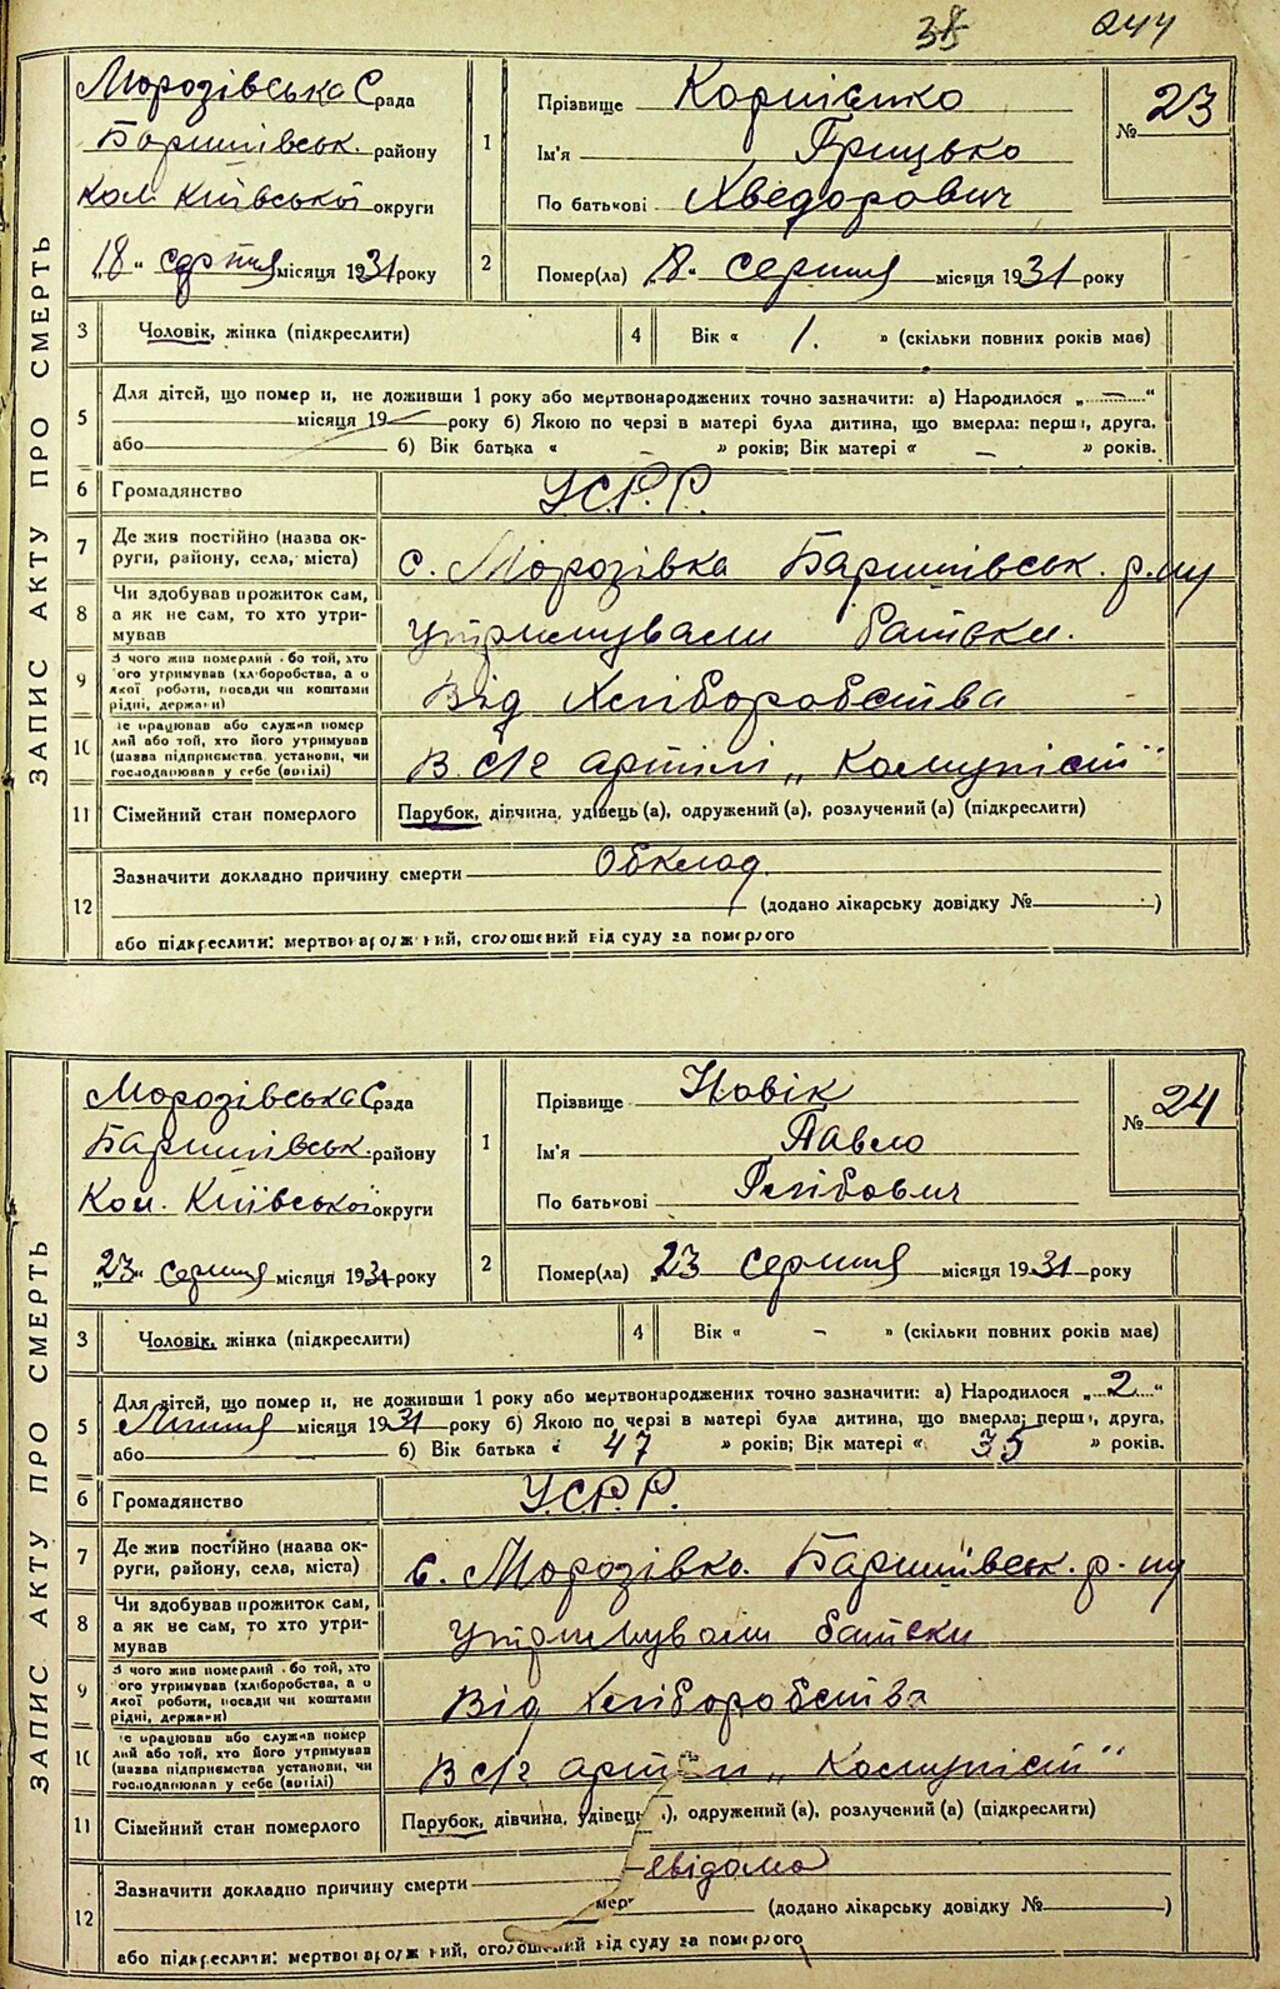 38 244
ЗАПИС АКТУ ПРО СМЕРТЬ
Морозівська С рада
Баришівськ. району
Кол. Київської округи
„18“ серпня місяця 1931 року
1
Прізвище Корнієнко
Ім'я Грицько
По батькові Хведорович
№ 23
2
Помер(ла) „18“ серпня місяця 1931 року
3 Чоловік, жінка (підкреслити)
4 Вік « 1. » (скільки повних років має)
5
Для дітей, що помер и, не доживши 1 року або мертвонароджених точно зазначити: а) Народилося „ — “
місяця 19— року б) Якою по черзі в матері була дитина, що вмерла: перш, друга,
або б) Вік батька « – » років; Вік матері « – » років.
6 Громадянство У.С.Р.Р.
7 Де жив постійно (назва ок-
руги, району, села, міста)
с. Морозівка Баришівськ. р-ну
8 Чи здобував прожиток сам,
а як не сам, то хто утри-
мував
Утримували батьки.
9 З чого жив померлий бо той, хто
ого утримував (хліборобства, а о
якої роботи, посади чи коштами
рідні, держави)
Від Хліборобства
10 е працював або служив помер
лий або той, хто його утримував
(назва підприємства установи, чи
господарював у себе (воілі)
В с/г артілі „Комуніст“
11 Сімейний стан померлого Парубок, дівчина, удівець (а), одружений (а), розлучений (а) (підкреслити)
12
Зазначити докладно причину смерти Обклад.
(додано лікарську довідку № )
або підкреслити: мертвонароджений, оголошений від суду за померлого
ЗАПИС АКТУ ПРО СМЕРТЬ
Морозівська С рада
Баришівськ. району
Кол. Київської округи
„23“ серпня місяця 1931 року
1
Прізвище Новік
Ім'я Павло
По батькові Глібович
№ 24
2
Помер(ла) „23 серпня місяця 1931 року
3 Чоловік, жінка (підкреслити)
4 Вік « – » (скільки повних років має)
5
Для дітей, що помер и, не доживши 1 року або мертвонароджених точно зазначити: а) Народилося „ 2 “
Липня місяця 1931 року б) Якою по черзі в матері була дитина, що вмерла: перш, друга,
або б) Вік батька « 47 » років; Вік матері « 35 » років.
6 Громадянство У.С.Р.Р.
7 Де жив постійно (назва ок-
руги, району, села, міста)
с. Морозівка Баришівськ. р-ну
8 Чи здобував прожиток сам,
а як не сам, то хто утри-
мував
Утримували батьки
9 З чого жив померлий бо той, хто
ого утримував (хліборобства, а о
якої роботи, посади чи коштами
рідні, держави)
Від Хліборобства
10 е працював або служив помер
лий або той, хто його утримував
(назва підприємства установи, чи
господарював у себе (воілі)
В с/г артілі „Комуніст“
11 Сімейний стан померлого Парубок, дівчина, удівець ), одружений (а), розлучений (а) (підкреслити)
12
Зазначити докладно причину смерти евідома
мер (додано лікарську довідку № )
або підкреслити: мертвонароджений, оголошений від суду за померлого